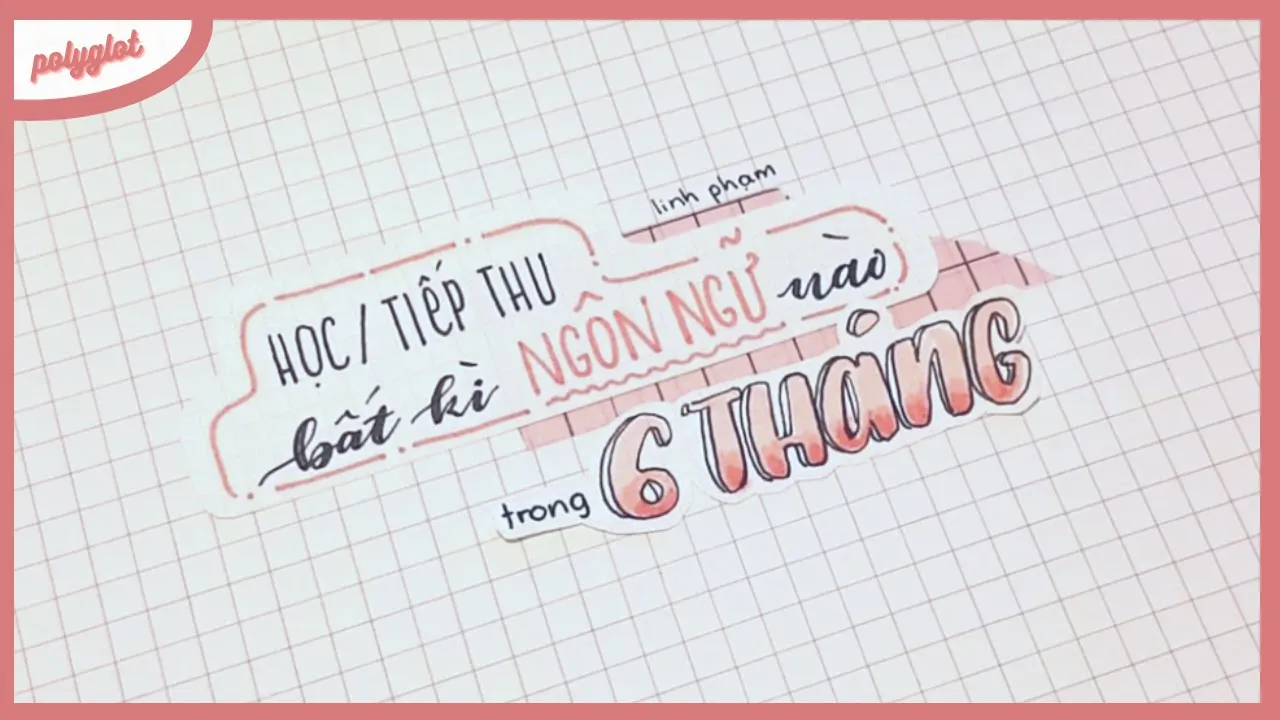 polyglot
linh phạm
HỌC / TIẾP THU
bất kì NGÔN NGỮ nào
trong 6 THÁNG